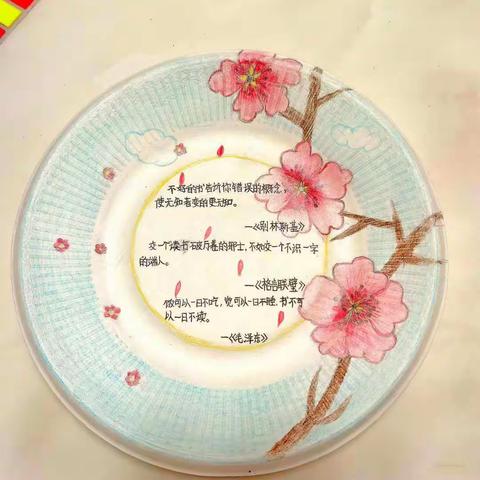 不好的书告诉你错误的概念，
使无知者变的更无知。
—《别林斯基》
交一个读书破万卷的邪士，不如交一个不识一字
的端人。
—《格言联璧》
饭可以一日不吃，觉可以一日不睡，书不可
以一日不读。
—《毛泽东》